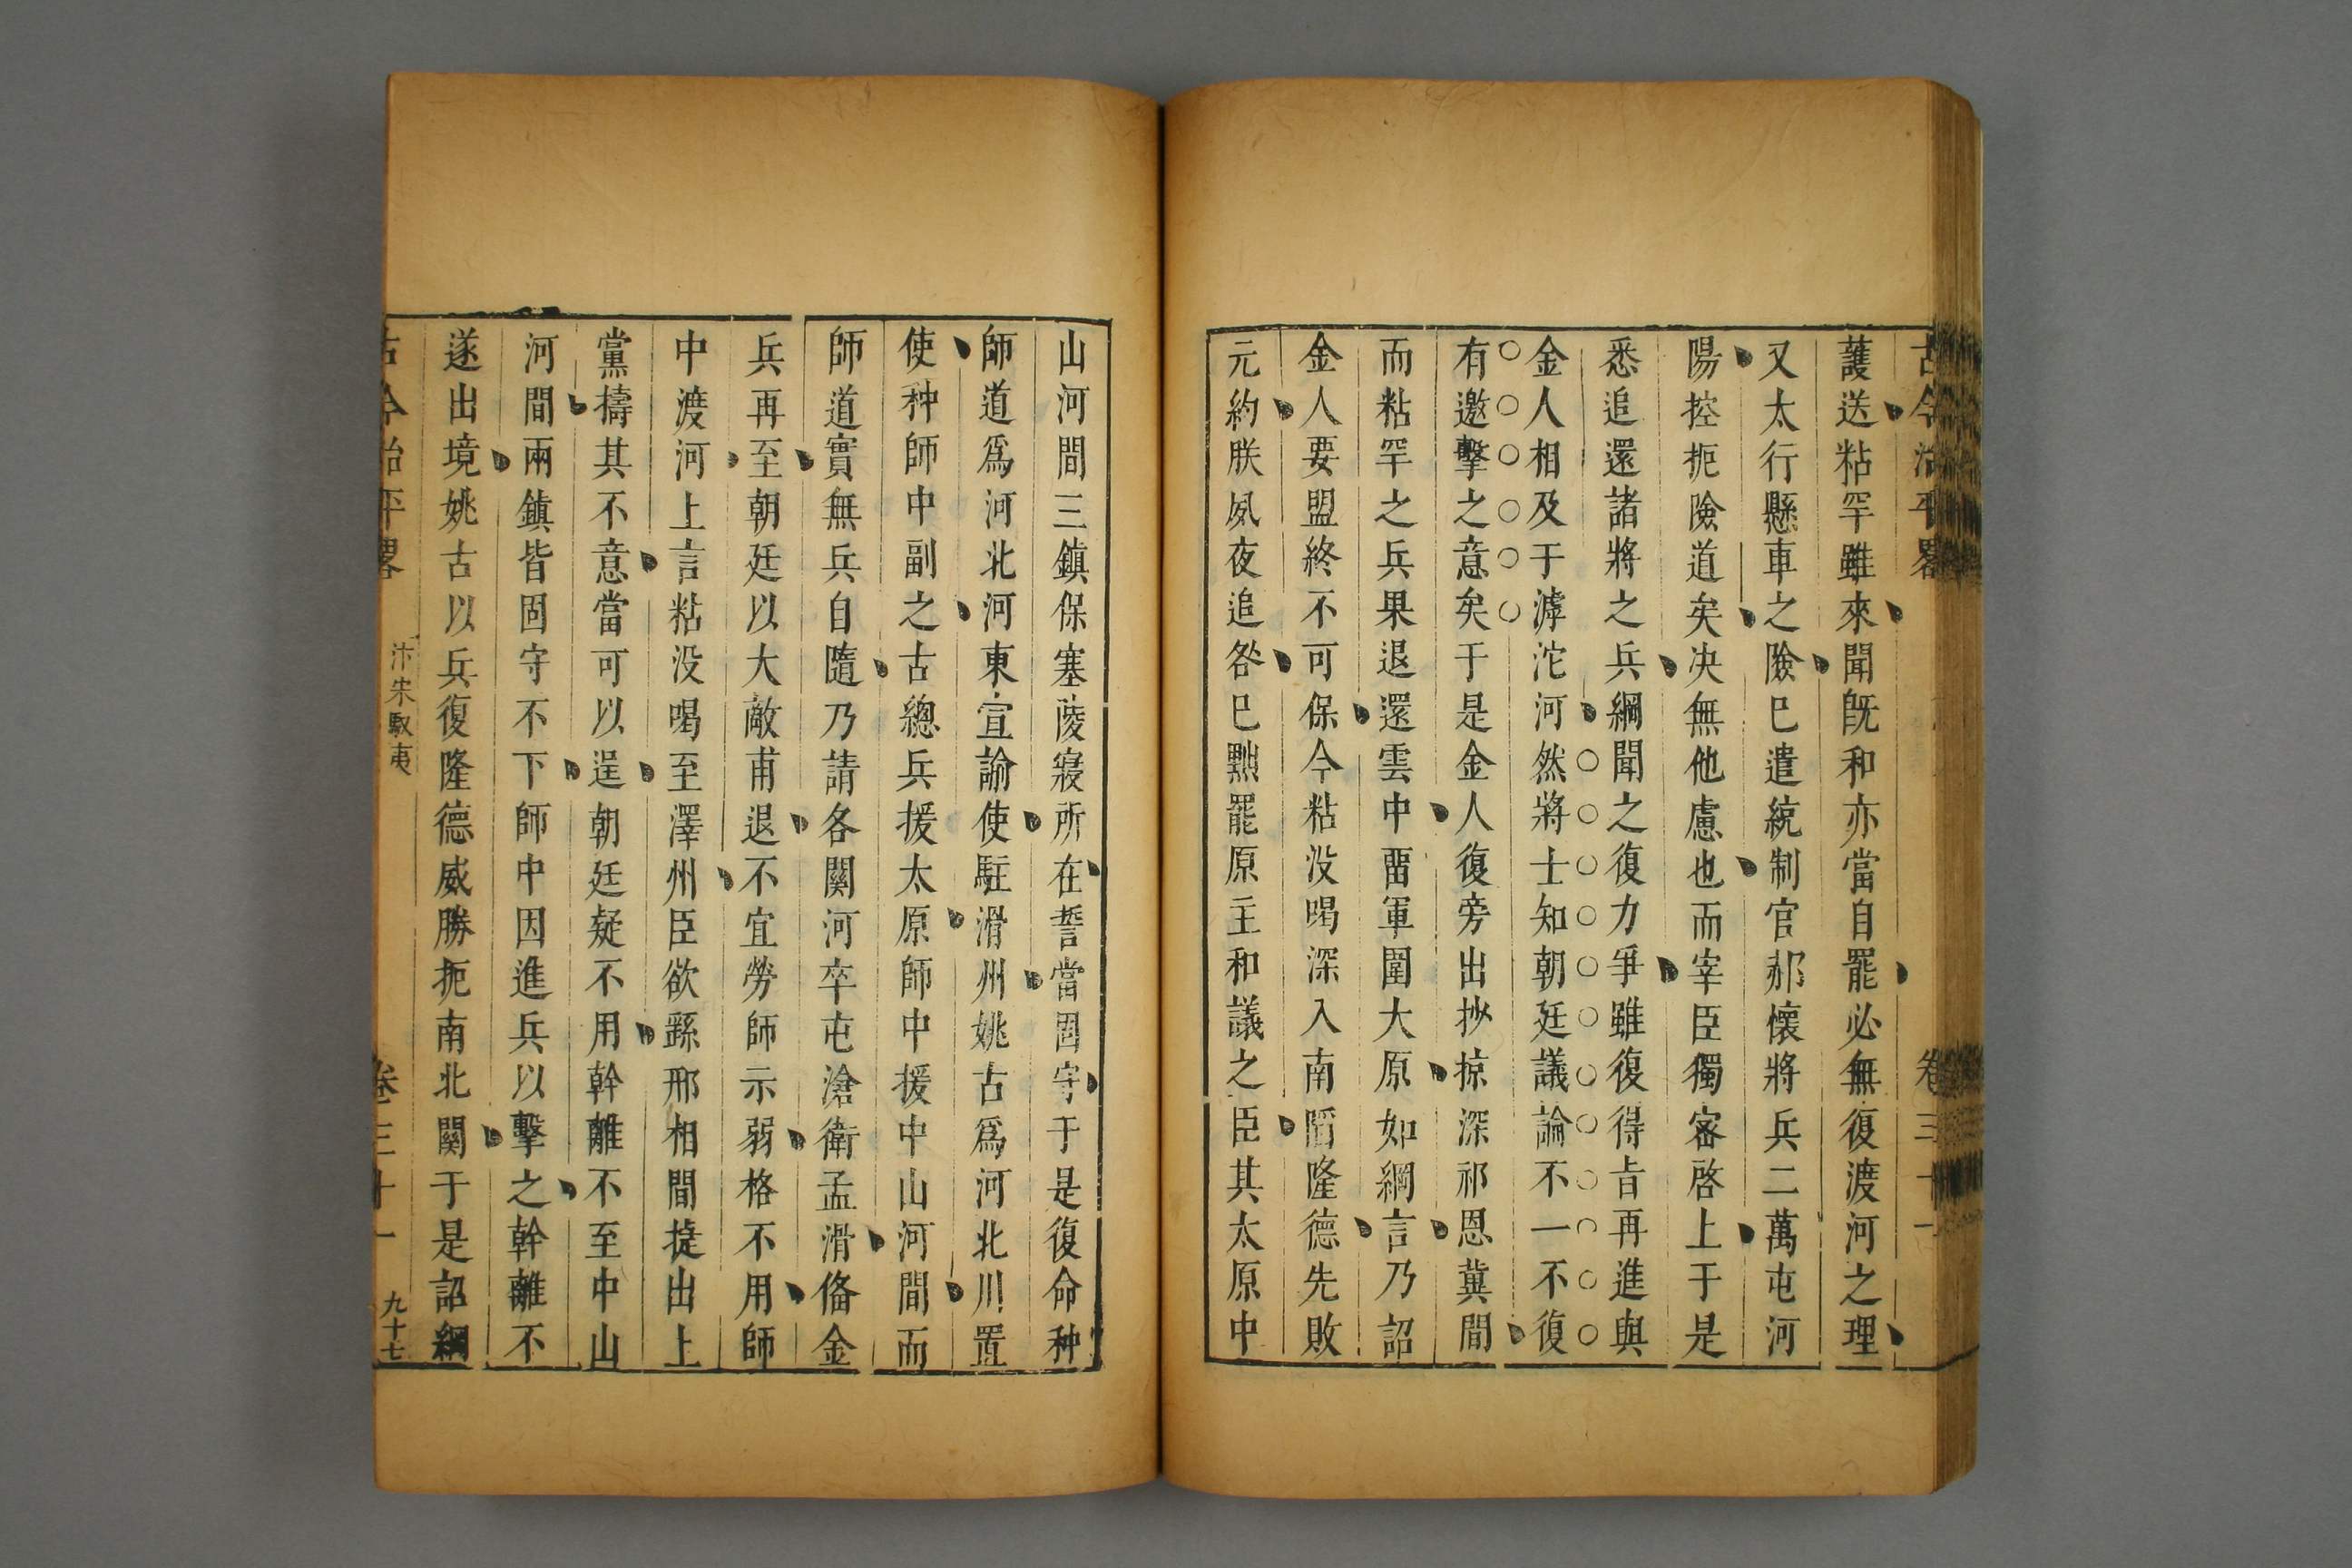 古今治平畧 卷三十一
護送粘罕雖來聞既和亦當自罷必無復渡河之理
又太行懸車之險已遣統制官郝懷將兵二萬屯河
陽控扼險道矣决無他慮也而宰臣獨密啓上于是
悉追還諸將之兵綱聞之復力爭雖復得旨再進與
金人相及于滹沱河然將士知朝廷議論不一不復
有邀擊之意矣于是金人復旁出抄掠深祁恩冀間
而粘罕之兵果退還雲中畱軍圍大原如綱言乃詔
金人要盟終不可保今粘没喝深入南䧟隆德先敗
元約朕夙夜追咎已黜罷原主和議之臣其太原中
山河間三鎮保塞陵寢所在誓當固守于是復命种
師道爲河北河東宣諭使駐滑州姚古爲河北川置
使种師中副之古總兵援太原師中援中山河間而
師道實無兵自隨乃請各關河卒屯滄衛孟滑俻金
兵再至朝廷以大敵甫退不宜勞師示弱格不用師
中渡河上言粘没喝至澤州臣欲繇邢相間㨗出上
黨擣其不意當可以逞朝廷疑不用幹離不至中山
河間兩鎮皆固守不下師中因進兵以擊之幹離不
遂出境姚古以兵復隆德威勝扼南北關于是詔綱
古今治平畧 汴宋馭夷 卷三十一 九十七